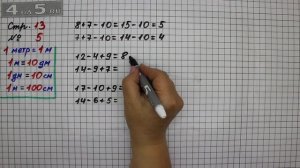 Стр. 13
№ 5
1 метр = 1 м
1 м = 10 дм
1 дм = 10 см
1 м = 100 см
8+7-10=15-10=5
7+7-10=14-10=4
12-4+9=8
14-9+7=
17-10+9=
14-6+5=